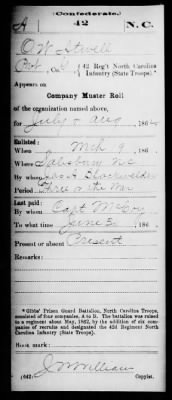 (Confederate.)
A 42 N.C.
O W Atwell
Pvt, Co. , 42 Reg't North Carolina Infantry (State Troops).*
Appears on
Company Muster Roll
of the organization named above,
for July & Aug, 186
Enlisted:
When Mch 9, 186
Where Salisbury NC
By whom Jas A Blackwelder
Period Three or the War
Last paid:
By whom Capt McCoy
To what time June 30, 186
Present or absent Present
Remarks:
*Gibbs' Prison Guard Battalion, North Carolina Troops,
consisted of four companies, A to D. The battalion was raised
to a regiment about May, 1862, by the addition of six companies
of recruits and designated the 42d Regiment North
Carolina Infantry (State Troops).
Book mark:
J W William
(642) Copyist.